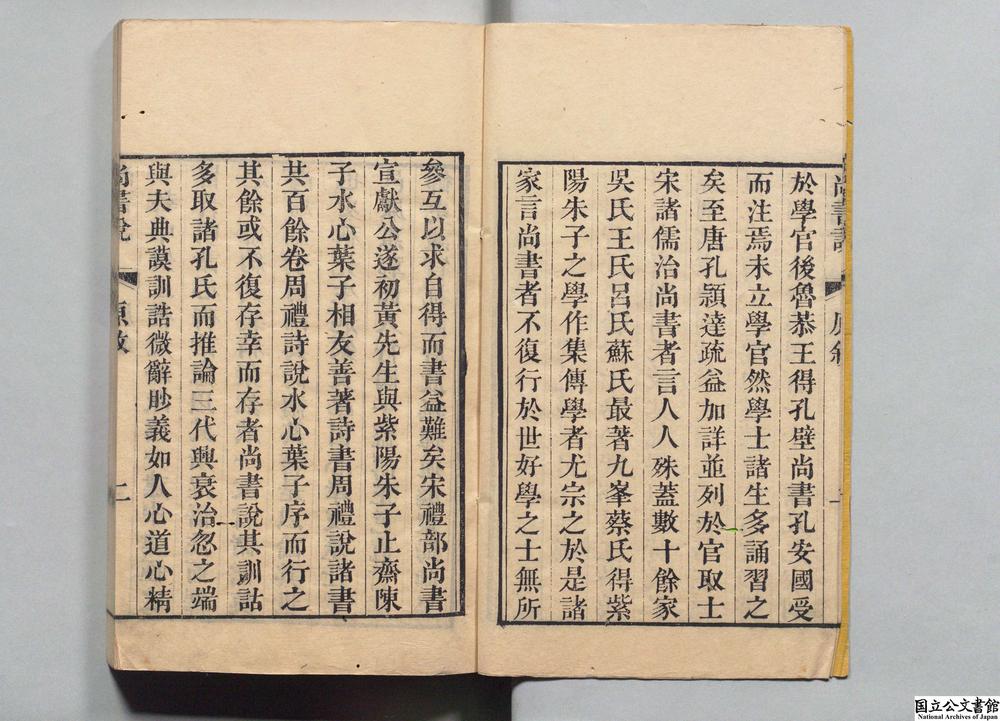 於學官後魯恭王得孔壁尚書孔安國受
而注焉未立學官然學士諸生多誦習之
矣至唐孔頴達疏益加詳並列於官取士
宋諸儒治尚書者言人人殊蓋數十餘家
吳氏王氏呂氏蘇氏最著九峯蔡氏得紫
陽朱子之學作集傳學者尤宗之於是諸
家言尚書者不復行於世好學之士無所
參互以求自得而書益難矣宋禮部尚書
宣獻公遂初黃先生與紫陽朱子止齋陳
子水心葉子相友善著詩書周禮說諸書
共百餘卷周禮詩說水心葉子序而行之
其餘或不復存幸而存者尚書說其訓詁
多取諸孔氏而推論三代興衰治忽之端
與夫典謨訓誥微辭眇義如人心道心精
尚書說 原敘 二
国立公文書館
National Archives of Japan